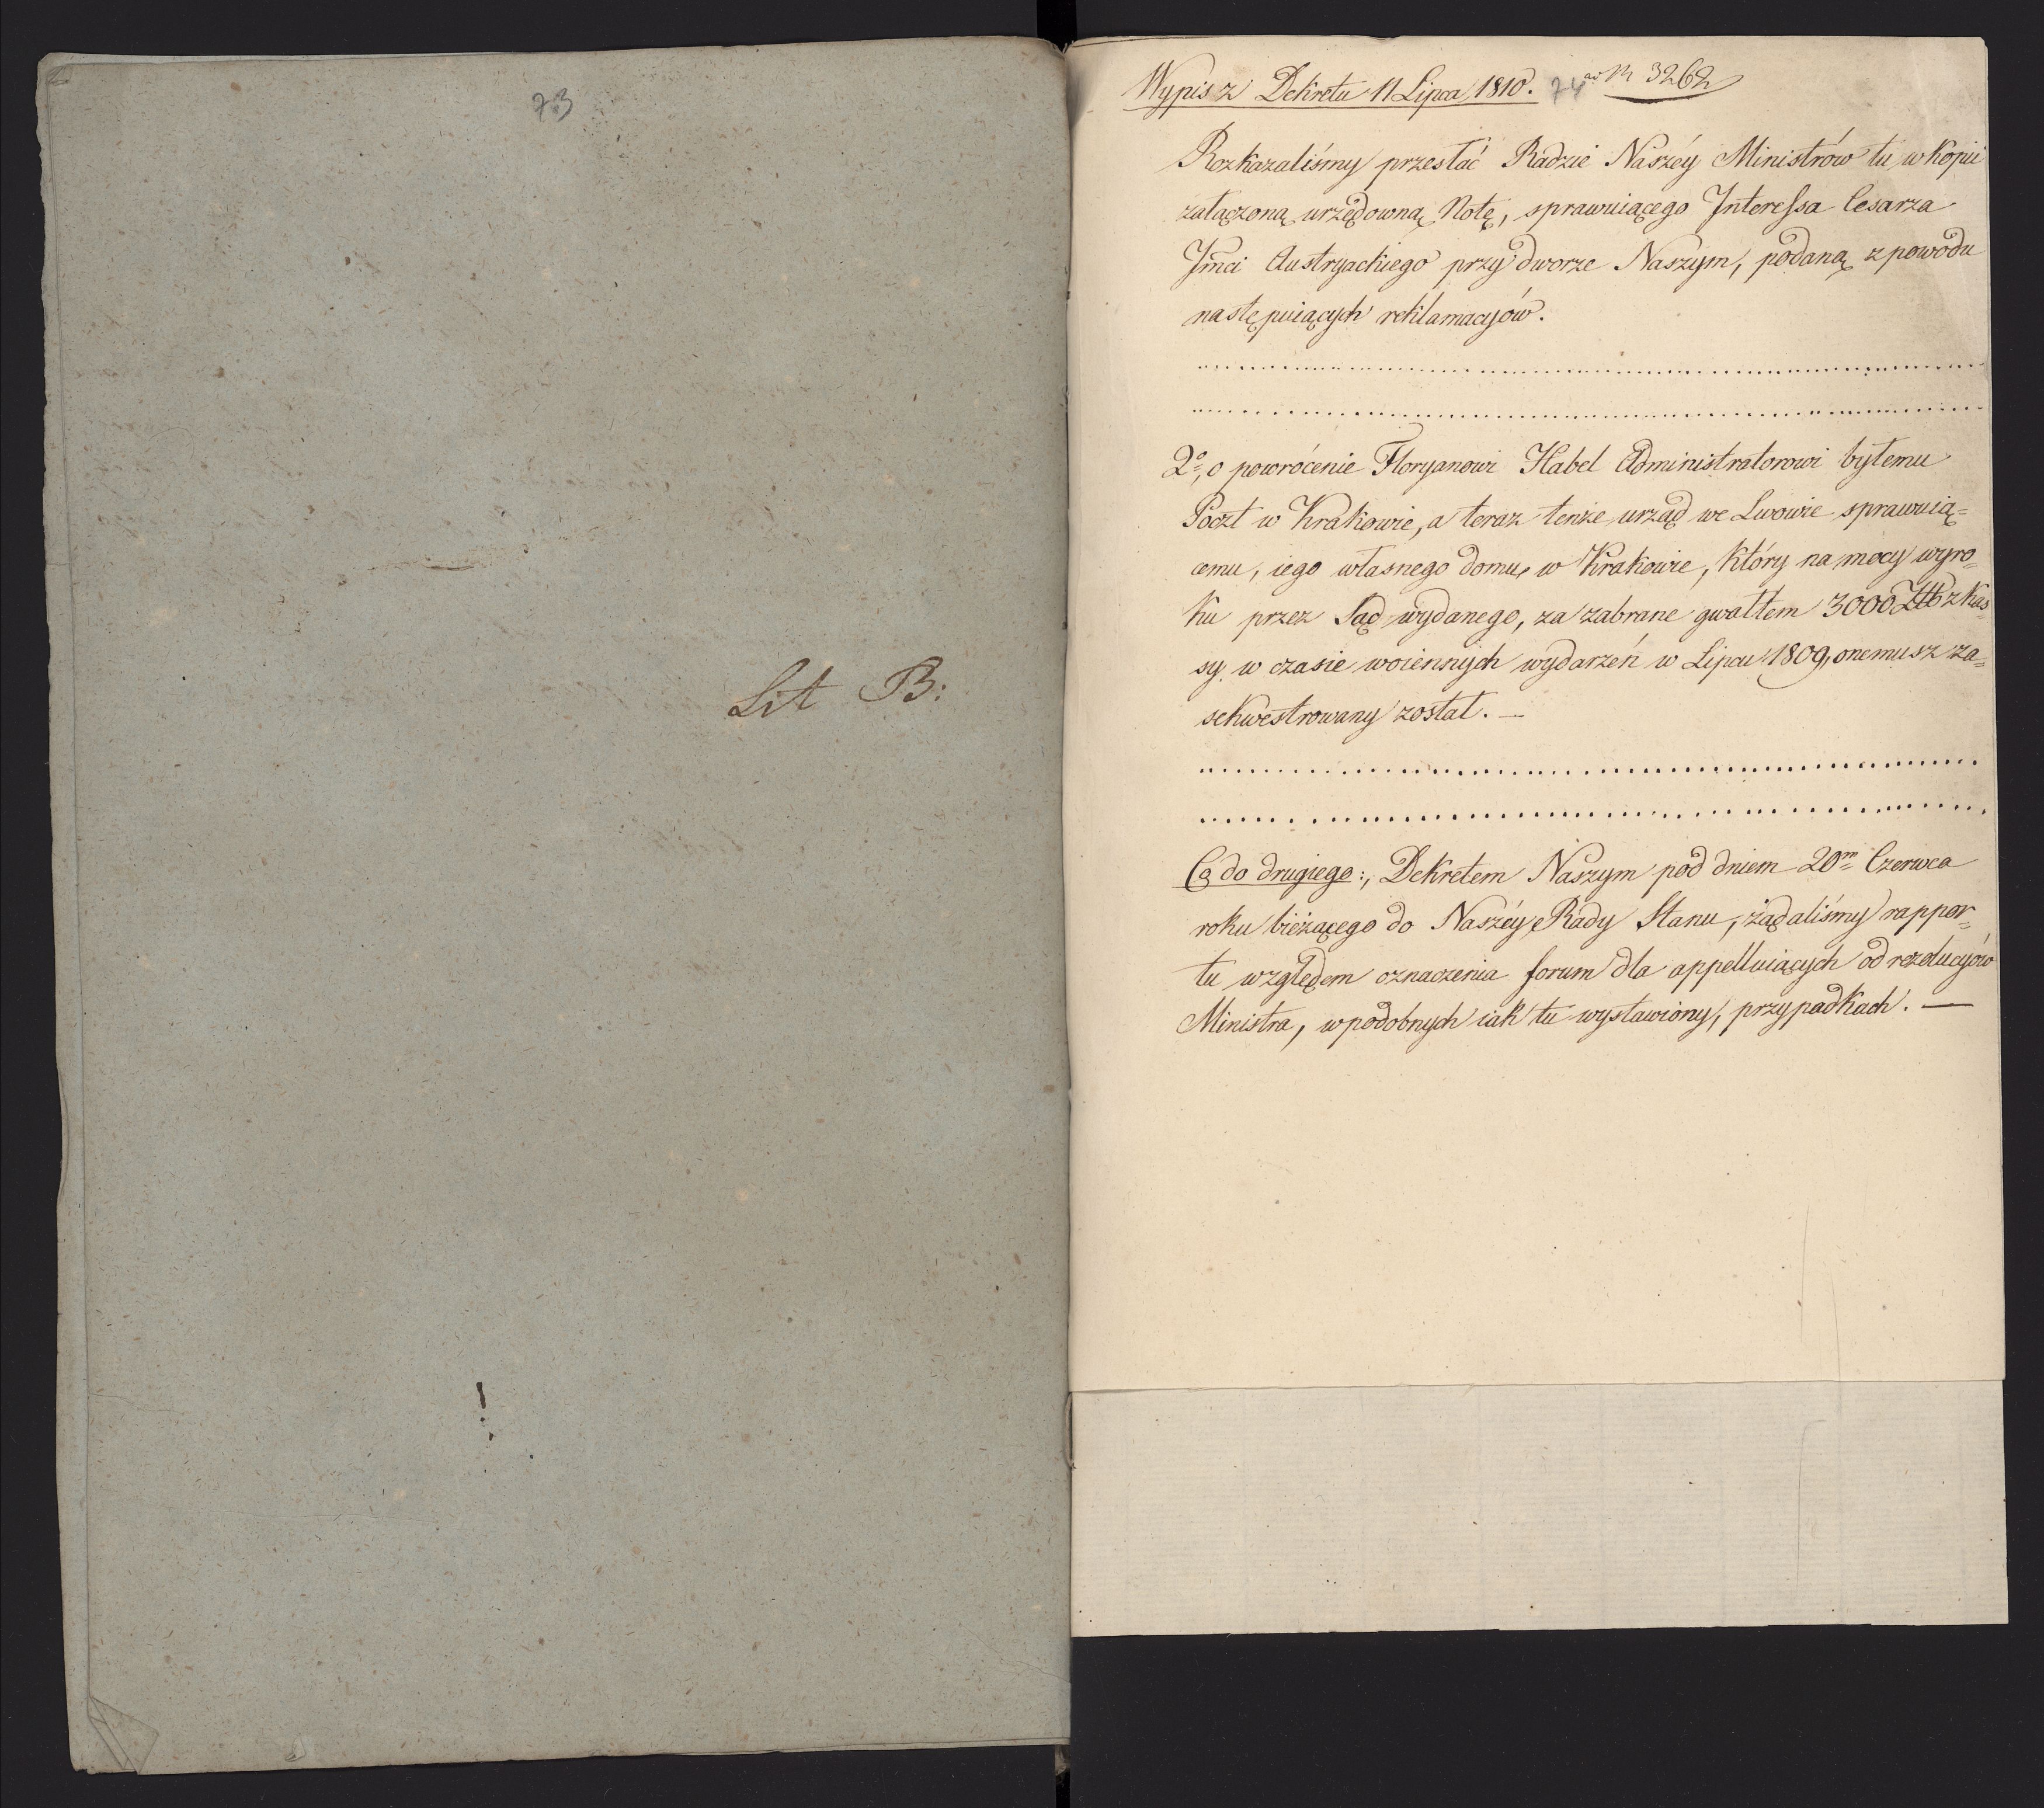 73
Lit B:
Wypis z Dekretu 11 Lipca 1810. 74 ad N 3262
Rozkazaliśmy przesłać Radzie Naszéy Ministrów tu w kopii
załączoną urzędowną Notę, sprawuiącego Interessa Cesarza
Jmci Austryackiego przy dworze Naszym, podaną z powodu
następuiących reklamacyów.
................................................................
................................................................
2o, o powrócenie Floryanowi Habel Administratorowi byłemu
Poczt w Krakowie, a teraz tenże urząd we Lwowie sprawuią=
cemu, iego własnego domu, w Krakowie, który na mocy wyro=
ku przez Sąd wydanego, za zabrane gwałtem 3000 Złł z kas=
sy w czasie woiennych wydarzeń w Lipcu 1809, onemusz za=
sekwestrowany został. —
................................................................
................................................................
Co do drugiego:, Dekretem Naszym pod dniem 20m Czerwca
roku bieżącego do Naszéy Rady Stanu, żądaliśmy rappor=
tu względem oznaczenia forum dla appelluiących od rezolucyów
Ministra, w podobnych iak tu wystawiony, przypadkach. —